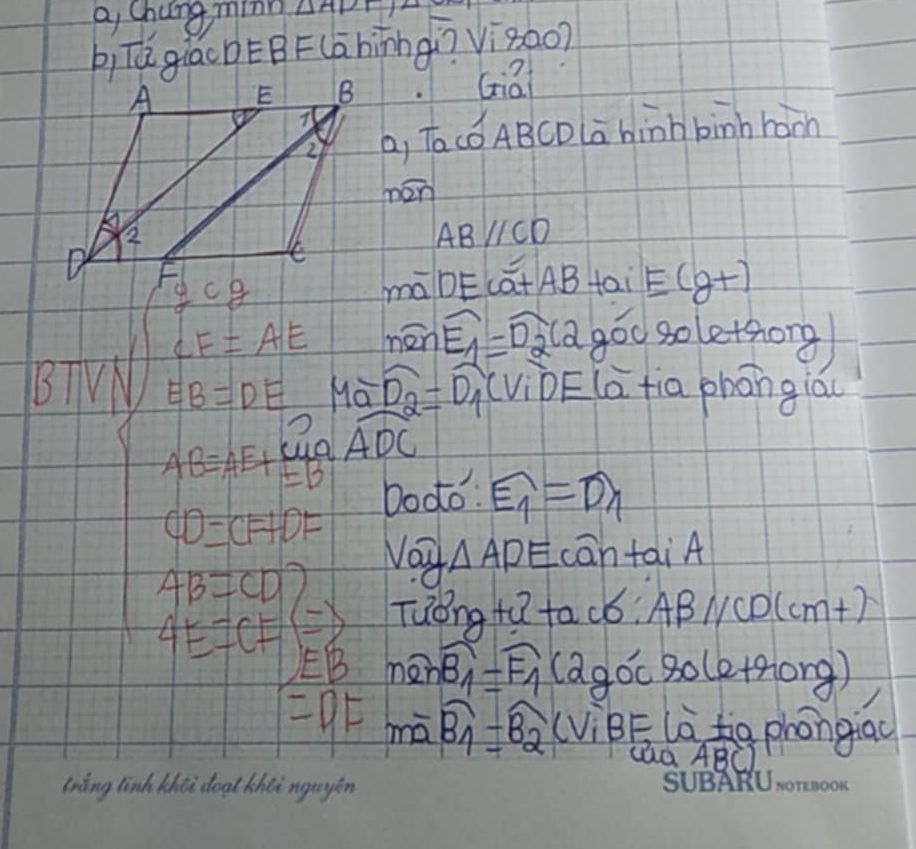 a, Chứng minh ΔADE, Δ
b, Tứ giác DEBF là hình gì? Vì sao?
Giải
A E B
1
2
2
D F C
a, Ta có ABCD là hình bình hành
nên
AB // CD
mà DE cắt AB tại E (gt)
nên Ê1 = D̂2 (2 góc so le trong)
Mà D̂2 = D̂1 (Vì DE là tia phân giác
của ADC
Do đó: Ê1 = D̂1
Vậy Δ ADE cân tại A
Tương tự ta có: AB // CD (cmt)
nên B̂1 = F̂1 (2 góc so le trong)
mà B̂1 = B̂2 (Vì BF là tia phân giác
của ABC)
BTVN
g c g
CF = AE
EB = DE
AB = AE + EB
CD = CF + DF
AB = CD
AE = CF
=> EB
= DF
trắng tinh khôi đoạt khôi nguyên
SUBARU NOTEBOOK